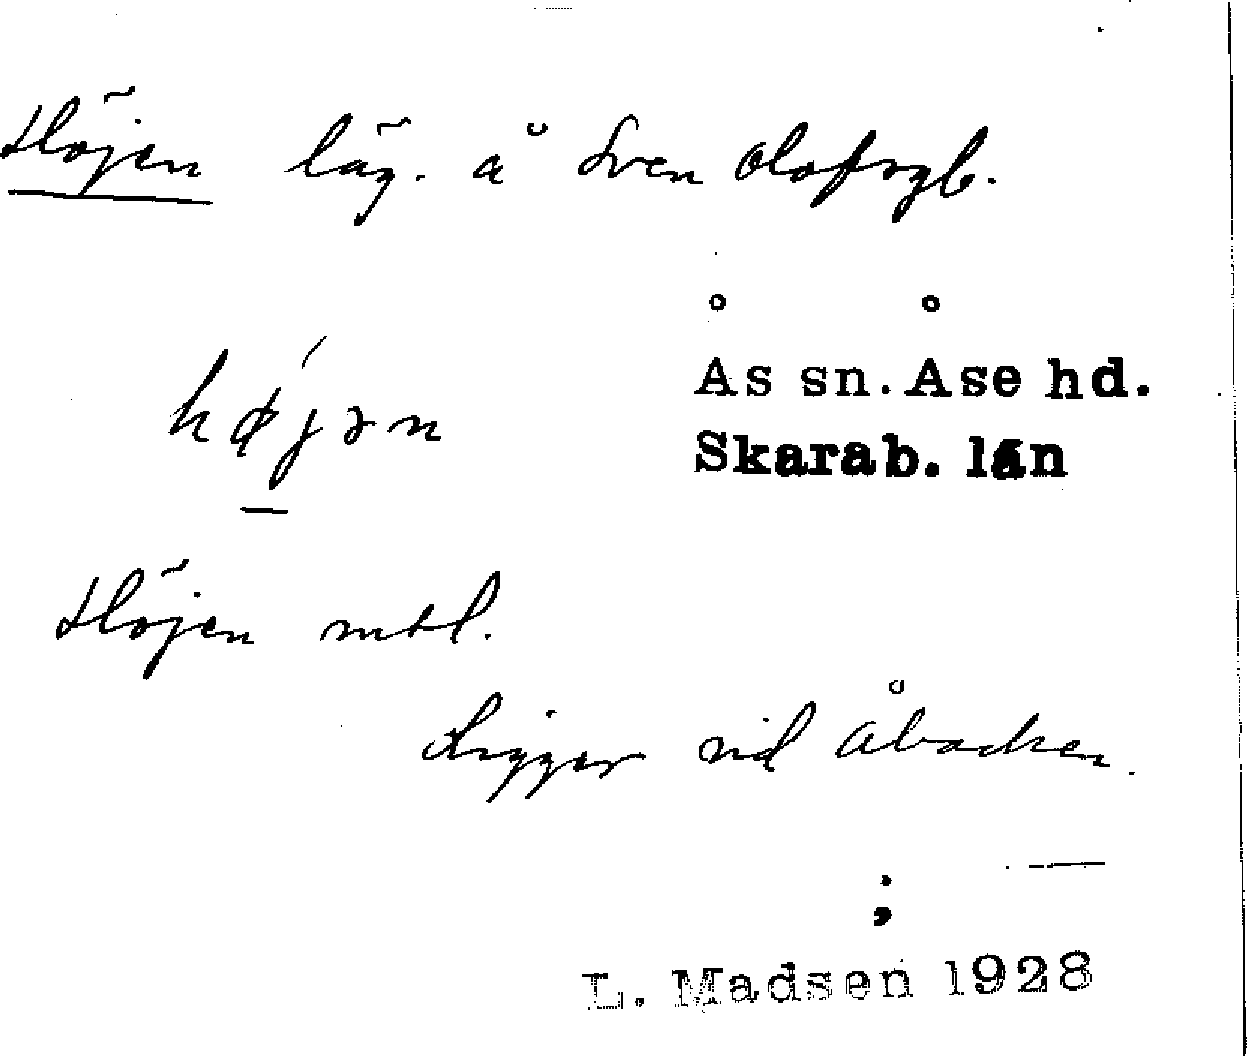 Höjen läg. å Sven Olofsgb.
Ås sn. Åse hd.
Skarab. län
højən
Höjen mtl.
Ligger vid Åbacken.
L. Madsen 1928